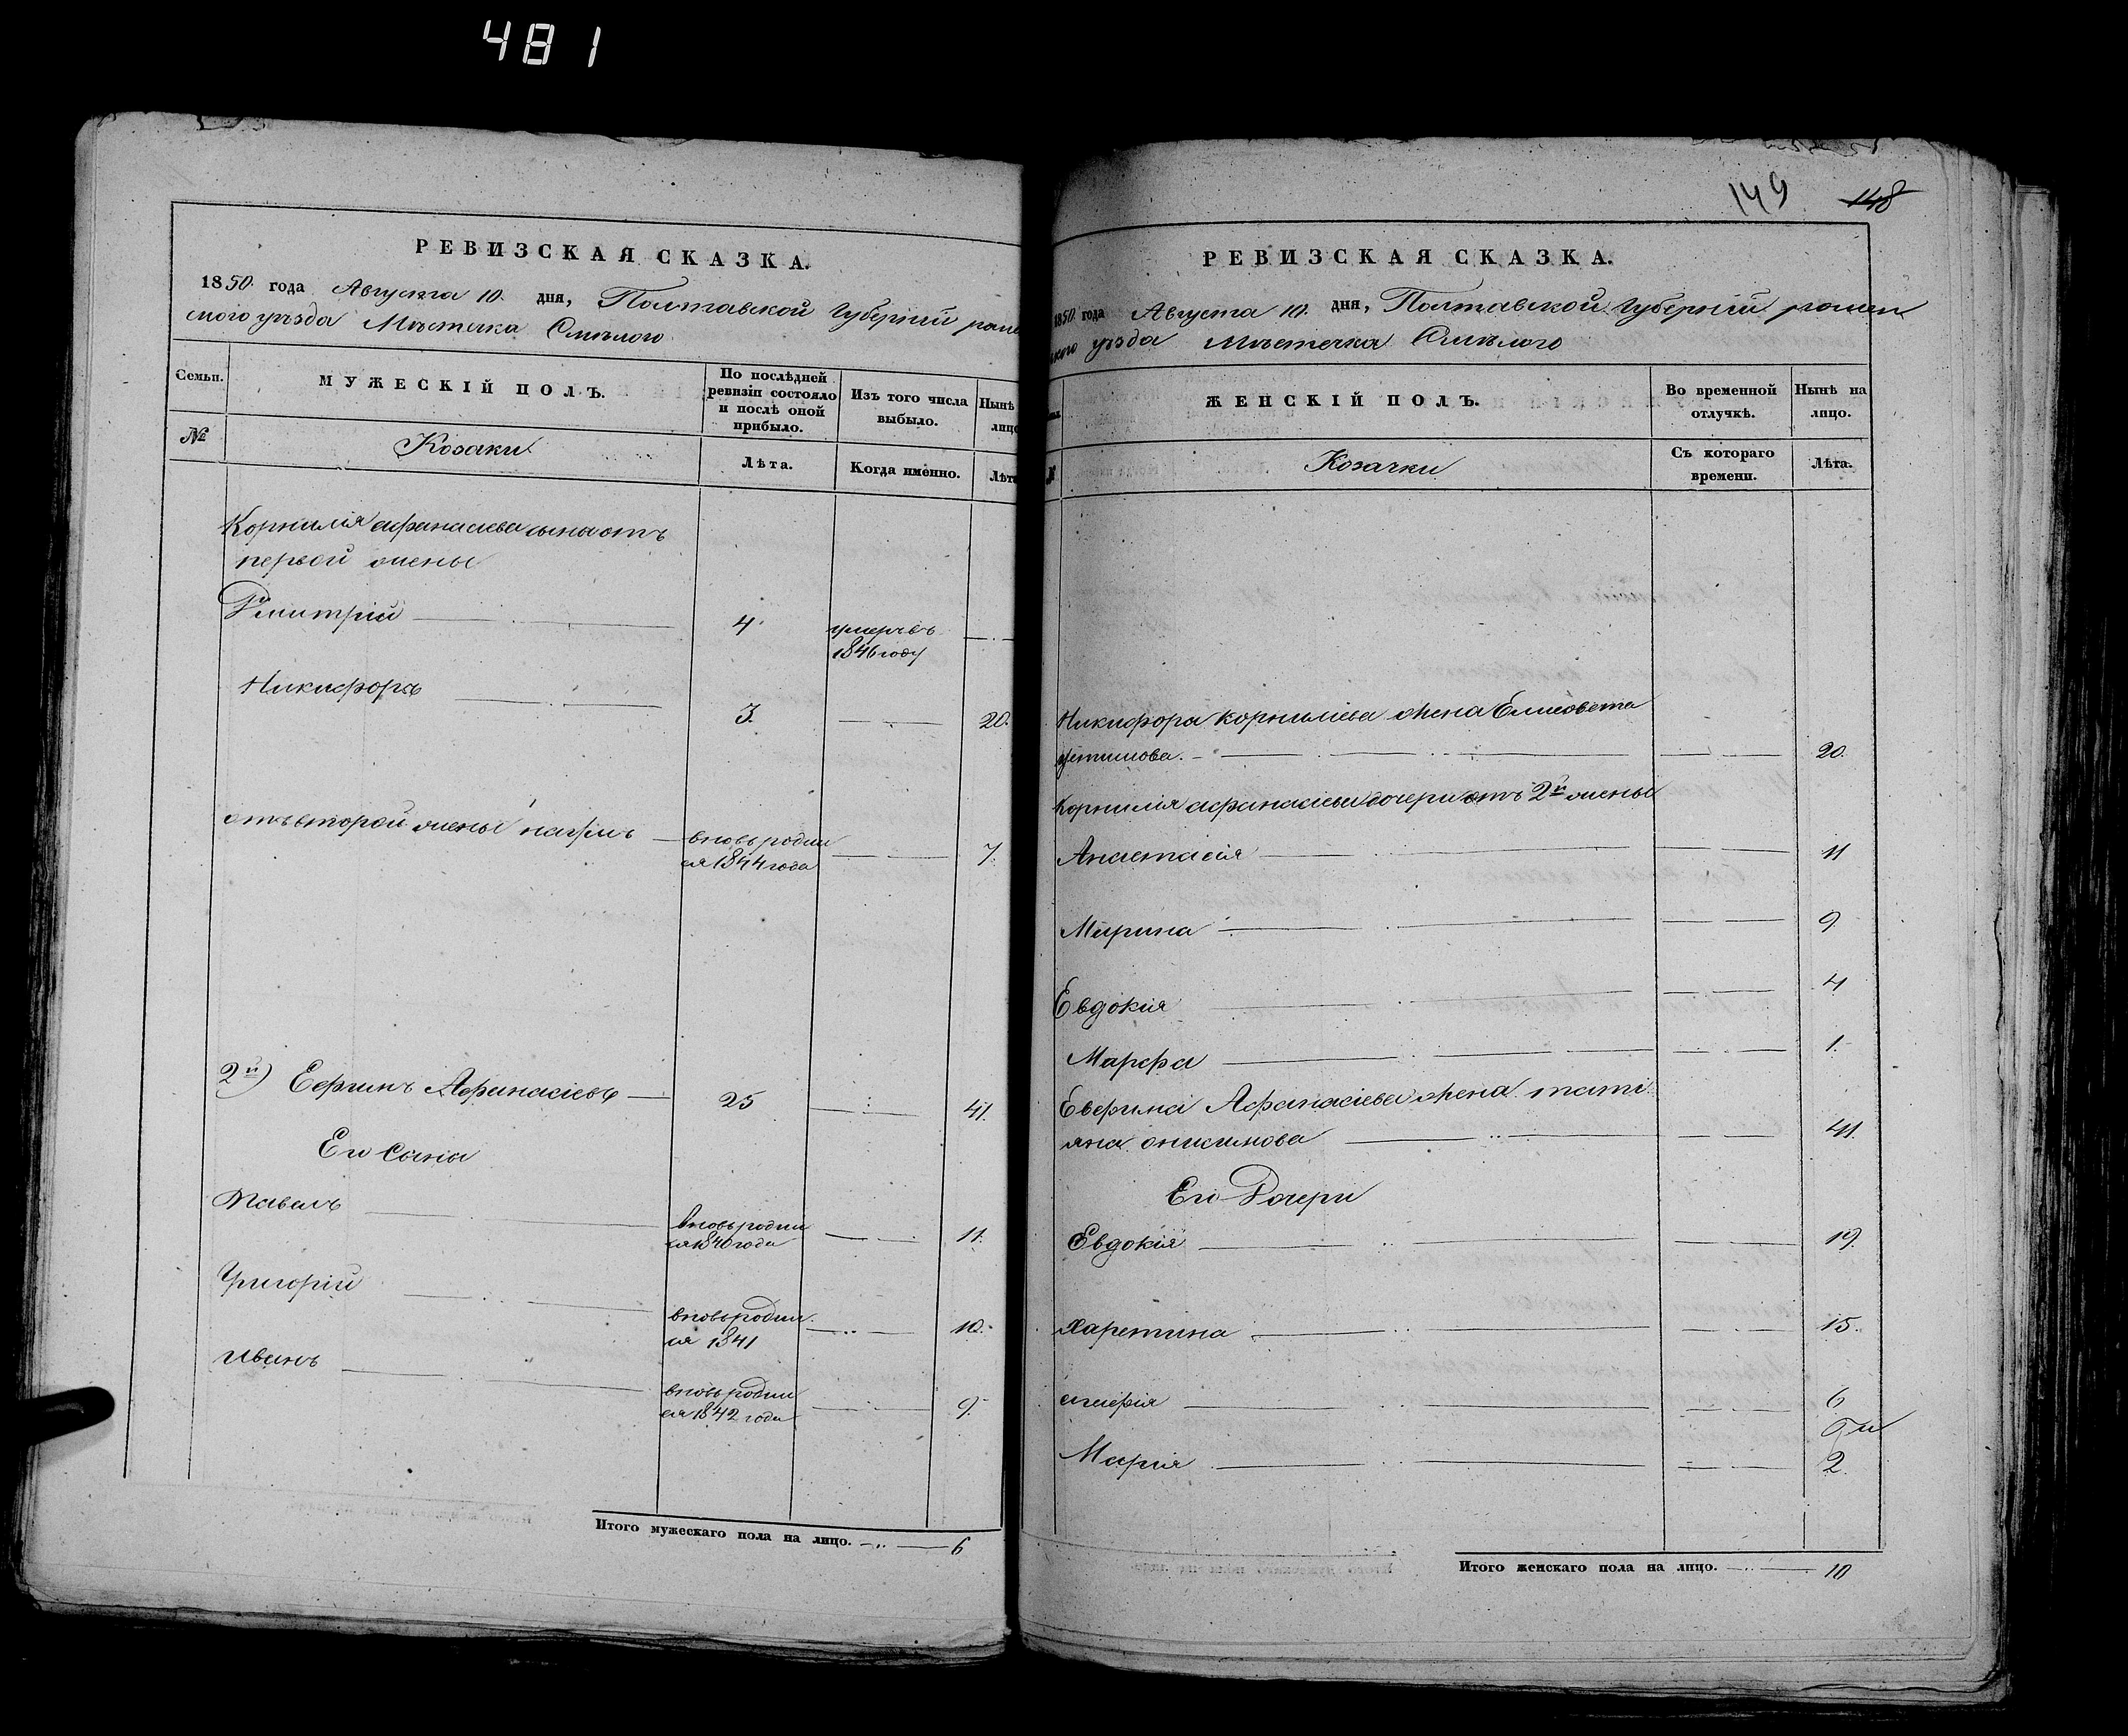 481
РЕВИЗСКАЯ СКАЗКА.
1850. года Августа 10. дня, Полтавской Губерніи роме
ского уѣзда Мѣстечка Смѣлого
Семьи.
МУЖЕСКІЙ ПОЛЪ.
По послѣдней ревизіи состояло и послѣ оной прибыло.
Изъ того числа выбыло.
Нынѣ лицо
№
Козаки
Лѣта.
Когда именно.
Лѣта
Корнилія афанасіева сына отъ
первой жены
Дмитрій 4. умеръ въ
1846 году
Никифоръ 3. 20.
отъ второй жены вновь родил 7.
ся 1844 года
2й) Афанасіевъ 25 41.
Его Сына
Павелъ вновь родил 11.
ся 1840 года
Григорій вновь родил 10.
ся 1841
Иванъ вновь родил 9.
ся 1842 года
Итого мужескаго пола на лицо. 6
149 148
РЕВИЗСКАЯ СКАЗКА.
1850 года Августа 10. дня, Полтавской Губерніи ромен
ского уѣзда Мѣстечка Смѣлого
ЖЕНСКІЙ ПОЛЪ.
Во временной отлучкѣ.
Нынѣ на лицо.
Козачки
Съ котораго времени.
Лѣта.
Никифора корниліева жена Елисавета
устимова. 20.
Корнилія афанасіева дочери отъ 2й жены
Анастасія 11
Марина 9.
Евдокія 4
Марфа 1.
Афанасіева жена таті
яна онисимова 41.
Его Дочери
Евдокія 19.
Харетина 15.
6
Марія 2.
Итого женскаго пола на лицо. 10